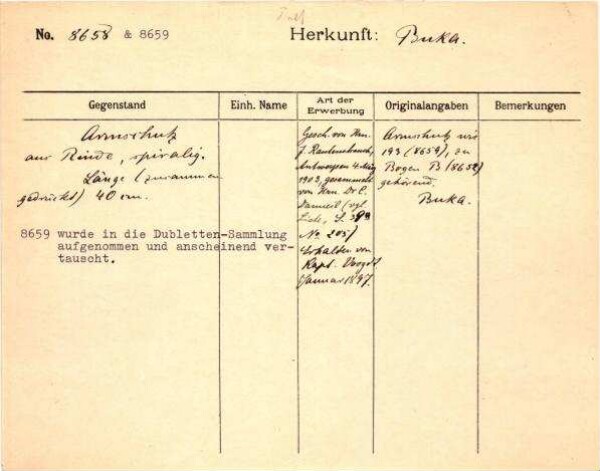 No. 8658 & 8659
Herkunft: Buka.
Gegenstand
Einh. Name
Art der Erwerbung
Originalangaben
Bemerkungen
Armschutz
aus Rinde, spiralig.
Länge (zusammen
gedrückt) 40 cm.
8659 wurde in die Dubletten-Sammlung
aufgenommen und anscheinend ver-
tauscht.
Gesch. von Hrn.
J. Rautenstrauch,
Antwerpen 4. 
1903, gesammelt
von Hrn. Dr. C.
(vgl.
No 205)
Erhalten von
Kapt. Voogdt
Januar 1897.
Armschutz wie
193 (8659), zu
Bogen B (8652)
gehörend.
Buka.